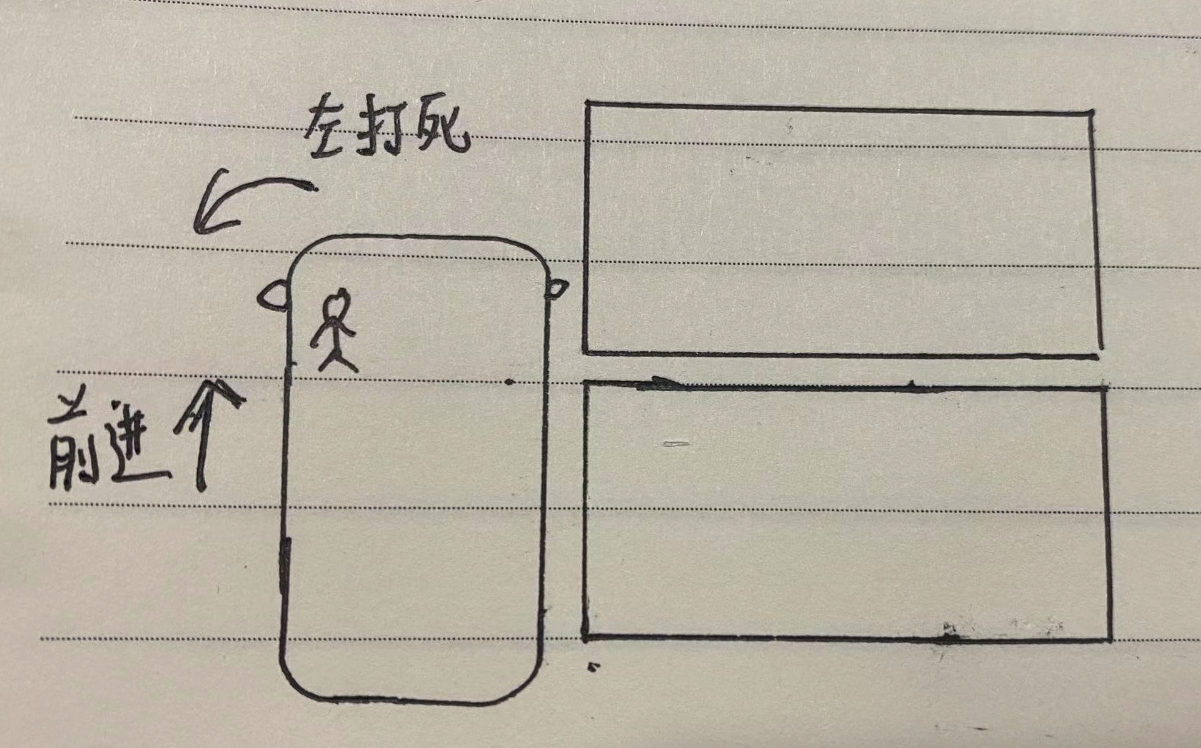 左打死
前进